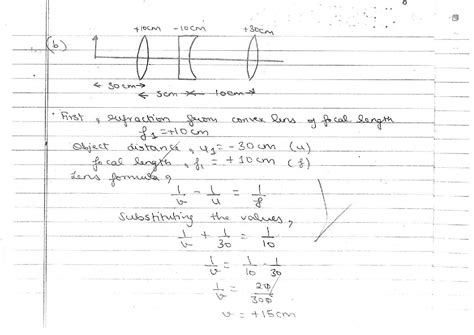 +10cm -10cm +30cm
(b)
30cm
5cm 10cm
First, refraction from convex lens of focal length
f₁=+10cm
Object distance, u₁ = -30cm (u)
focal length, f₁ = +10cm (f)
Lens formula,
1/v - 1/u = 1/f
Substituting the values,
1/v + 1/30 = 1/10
1/v = 1/10 - 1/30
1/v = 20/300
v = +15cm